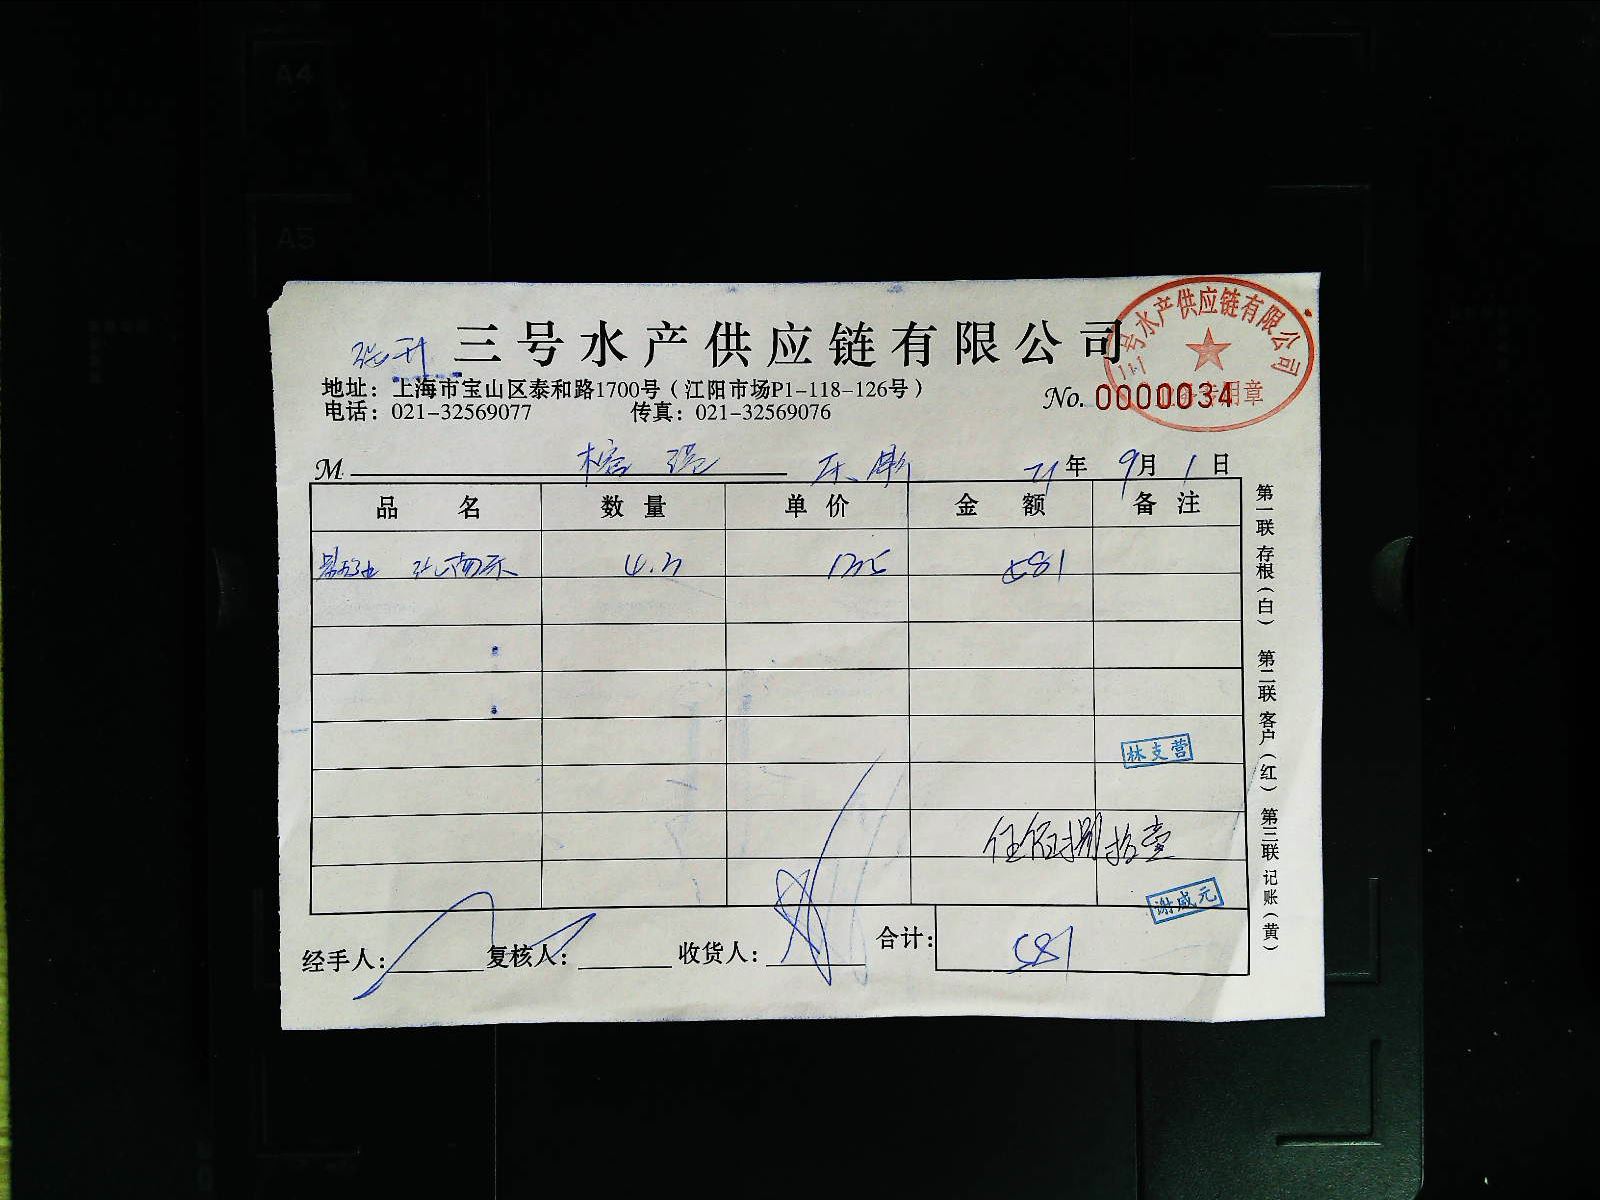 A4
A5
三号水产供应链有限公司
号水产供应链有限公司
地址：上海市宝山区泰和路1700号（江阳市场P1-118-126号）
电话：021-32569077 传真：021-32569076
No. 0000034
专用章
M. 21年 9月 1日
品名 数量 单价 金额 备注
581
第一联 存根（白） 第二联 客户（红） 第三联 记账（黄）
林支营
伍佰捌拾壹
谢咸元
经手人： 复核人： 收货人： 合计： 581